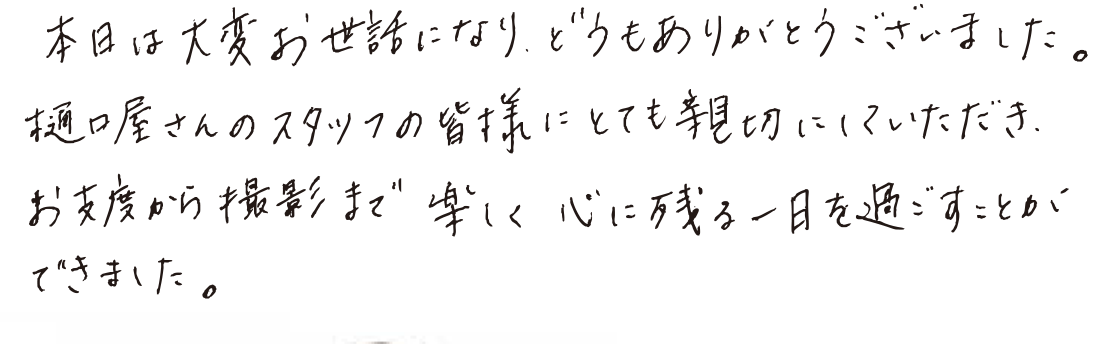 本日は大変お世話になり、どうもありがとうございました。
樋口屋さんのスタッフの皆様にとても親切にしていただき、
お支度から撮影まで楽しく心に残る一日を過ごすことが
できました。